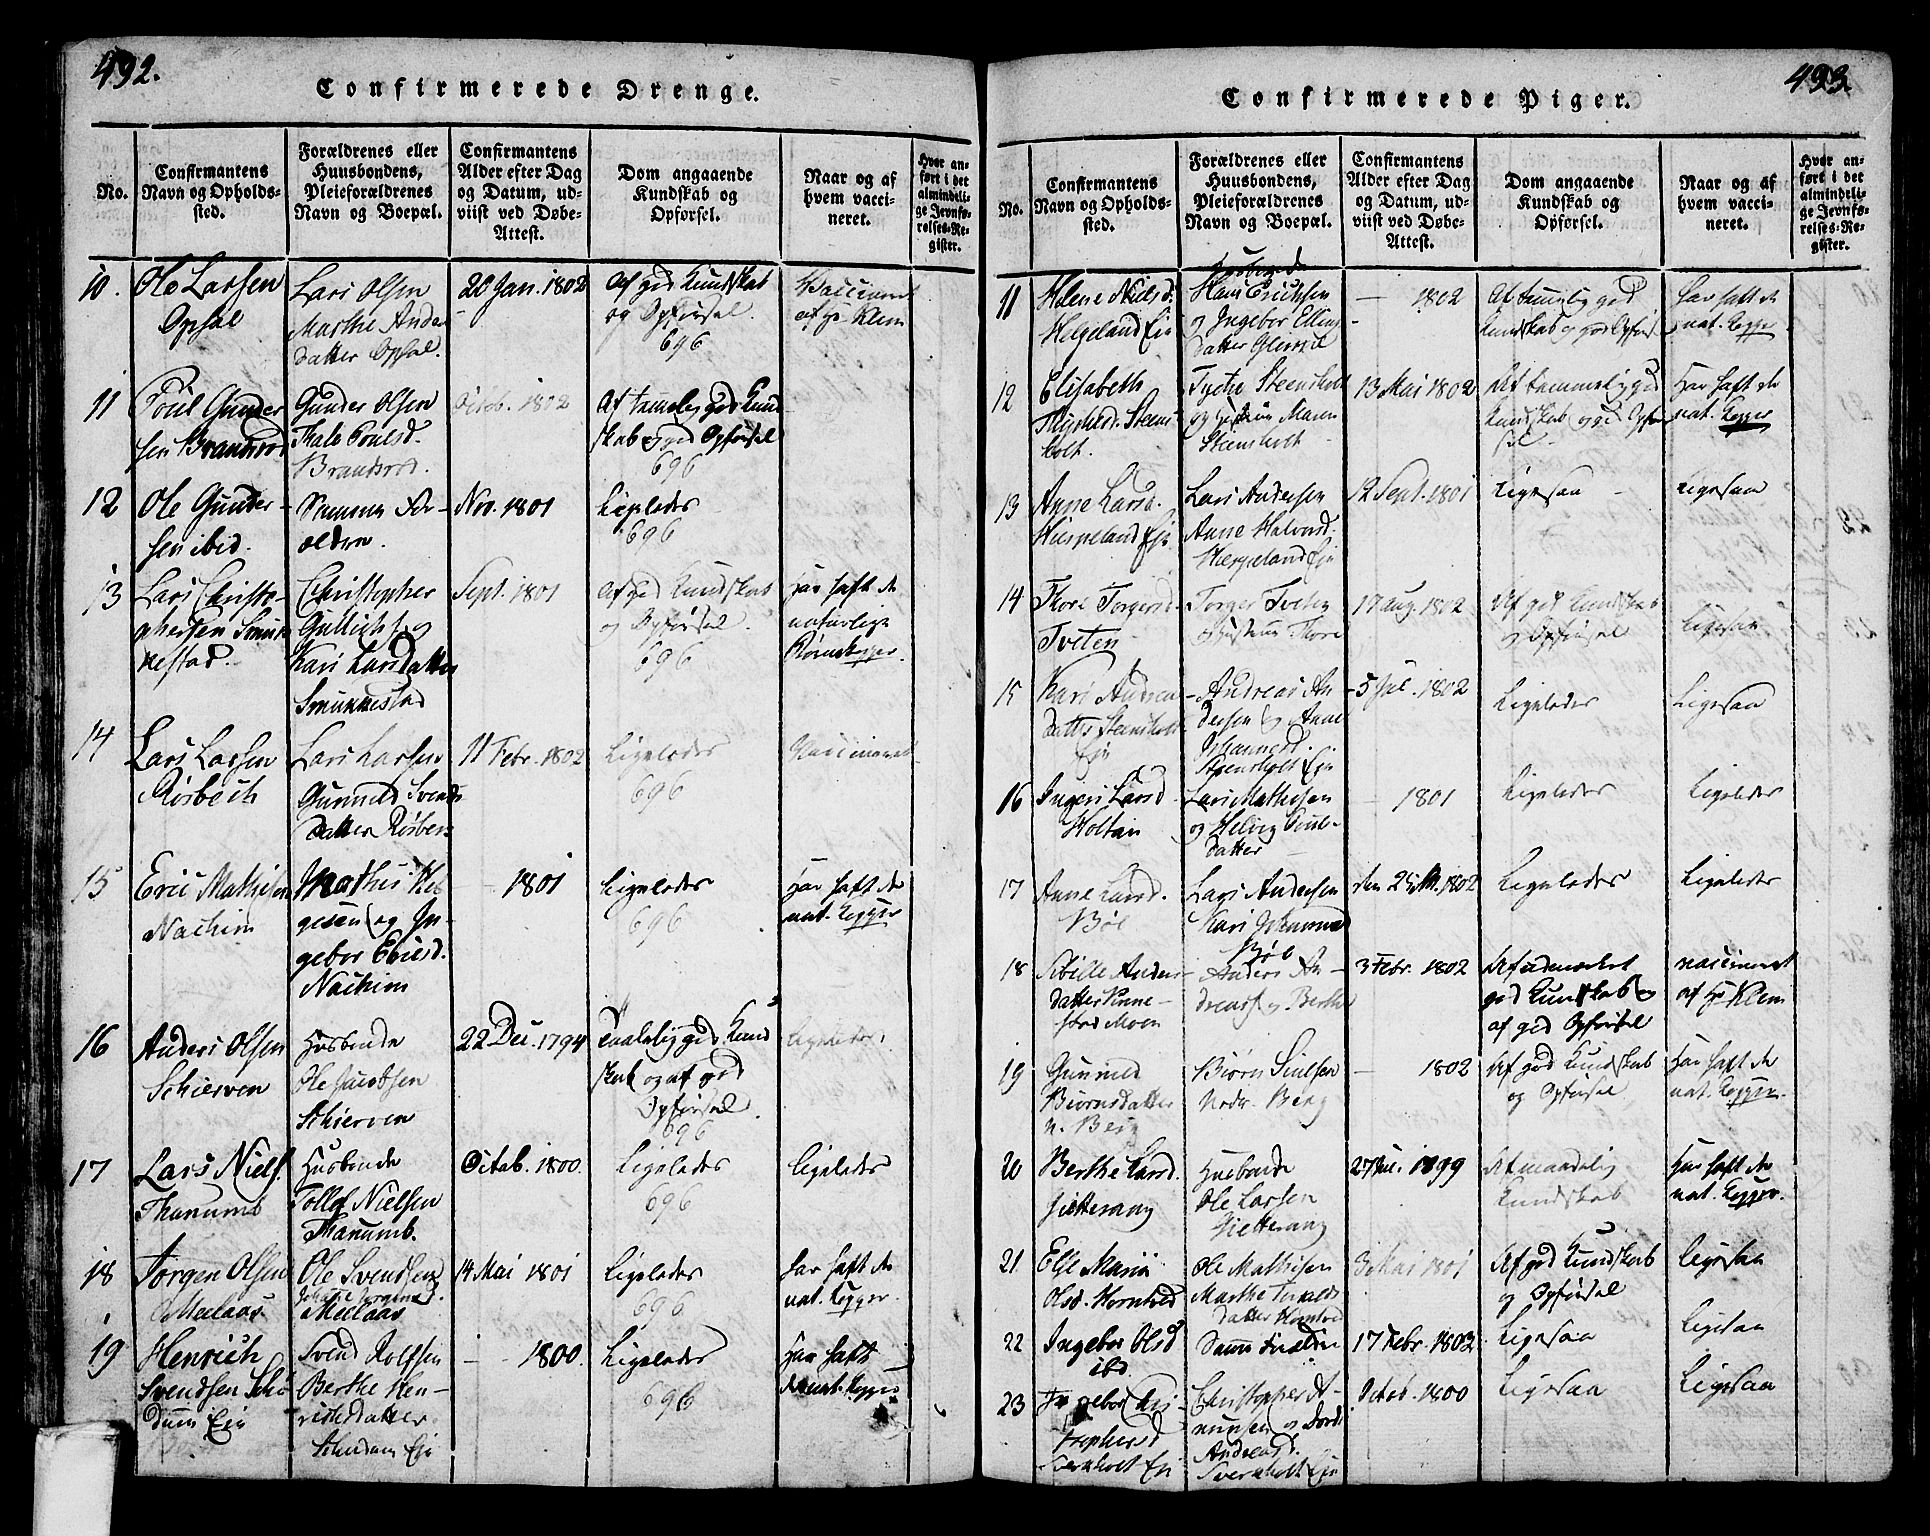 492.
Confirmerede Drenge.
No.
Confirmantens
Navn og Opholds-
sted.
Forældrenes eller
Huusbondens,
Pleieforældrenes
Navn og Boepæl.
Confirmantens
Alder efter Dag
og Datum, ud-
viist ved Døbe-
Attest.
Dom angaaende
Kundskab og
Opførsel.
Naar og af
hvem vacci-
neret.
Hvor an-
ført i det
almindeli-
ge Jevnfø-
relses-Re-
gister.
10.
Ole Larsen
Opsal
Lars Olsen
Marthe Anders
datter Opsal.
20 Jan. 1802
Af god Kundskab
og Opførsel.
696
Vaccineret
af Hr Klem
11
Poul Gunder
sen
Gunder Olsen
Poulsd.
Octob. 1802
Af temelig god Kund
skab og god Opførsel
696
12
Ole Gunder-
sen ibid.
Samme For-
ældre.
Nov. 1801
Ligeledes
696
13
Lars Christo-
phersen
Christopher
og
Kari Larsdatter
Smukkestad
Sept. 1801
Af god Kundskab
og Opførsel.
696
Har haft de
naturlige
Børnekopper.
14
Lars Larsen
Lars Larsen
Gunnild Svends
datter
11 Febr. 1802
Ligeledes
696
Vaccineret
15
Eric Mathisen
Nachim
Mathis Hel
gesen og In-
gebor Ericsd.
Nachim
- 1801
Ligeledes
696
Har haft de
nat. Kopper
16
Anders Olsen
Schierven
Husbonde
Ole Jacobsen
Schierven
22 Dec. 1794
Taalelig god Kund
skab og af god
Opførsel.
696
Ligeledes
17
Lars Niels.
Thanumb
Husbonde
Tollef Nielsen
Thanumb.
Octob. 1800.
Ligeledes
696
Ligeledes
18
Jørgen Olsen
Meelaas
Ole Svendsen
Meelaas
14 Mai 1801
Ligeledes
696
Har haft de
nat. Kopper.
19
Henrich
Svendsen
Eje
Svend Rolfsen
Berthe Hen-
richsdatter
Eje
- 1800.
Ligeledes
696
Har haft
de nat. Kopper
493.
Confirmerede Piger.
No.
Confirmantens
Navn og Opholds-
sted.
Forældrenes eller
Huusbondens,
Pleieforældrenes
Navn og Boepæl.
Confirmantens
Alder efter Dag
og Datum, ud-
viist ved Døbe-
Attest.
Dom angaaende
Kundskab og
Opførsel.
Naar og af
hvem vacci-
neret.
Hvor an-
ført i det
almindeli-
ge Jevnfø-
relses-Re-
gister.
11
Helene Nielsd.
Helgeland Eje
Husbonde
Hans Erichsen
og Ingebor Ellings
datter
- 1802
Af temelig god
Kundskab og god Opførs
Har haft de
nat. Kopper
12
Elisabeth
Steens
holt.
Steenholt
og
Steensholt
13 Mai 1802
Af temmelig god
Kundskab og god Opfør
sel.
Har haft de
nat. Kopper
13
Anne Larsd.
Eje
Lars Andersen
Anne Halvorsd.
Eje
12 Sept. 1801
Ligesaa
Ligesaa
14
Thore Torgersd.
Tveten
Torger Tveten
Hustrue Thore
17 Aug. 1802
Af god Kundskab
og Opførsel
Ligesaa
15
Kari Andrea
datter Steensholt
Eje
Andreas An
dersen og Anne
Johannesd.
Steensholt Eje
5 Jul. 1802
Ligeledes
Ligesaa
16
Ingeri Larsd
Holtan
Lars Mathisen
og Helvig Poul-
datter
- 1801
Ligeledes
Ligeledes
17
Anne Larsd.
Böe
Lars Andersen
Kari Johannesd
Böe
1802
Ligeledes
Ligeledes
18
Sibille Anders
datter
Moen
Anders An
dreas. og Berthe
3 Febr. 1802
Af udmærket
god Kundskab og
af god Opførsel
vaccineret
af Hr Klem
19
Gunnild
Biørnsdatter
N. Berg
Biørn
Nedr. Berg
- 1802
Af god Kundskab
og Opførsel
Har haft de
nat. Kopper.
20
Berthe Larsd.
Husbonde
Ole Larsen
1799
Af maadelig
Kundskab
Har haft de
nat. Kopper.
21
Else Maria
Olsd.
Ole Mathisen
Marthe
datter
3 Mai 1801
Af god Kundskab
og Opførsel
Ligesaa
22
Ingebor Olsd
ibd.
Samme Forældre
17 Febr. 1803
Ligesaa
Ligesaa
23
Ingebor Chri-
stophersd
Eje
Christopher A-
munsen og
Andreasd.
Eje
Octob. 1800
Ligesaa
Ligesaa